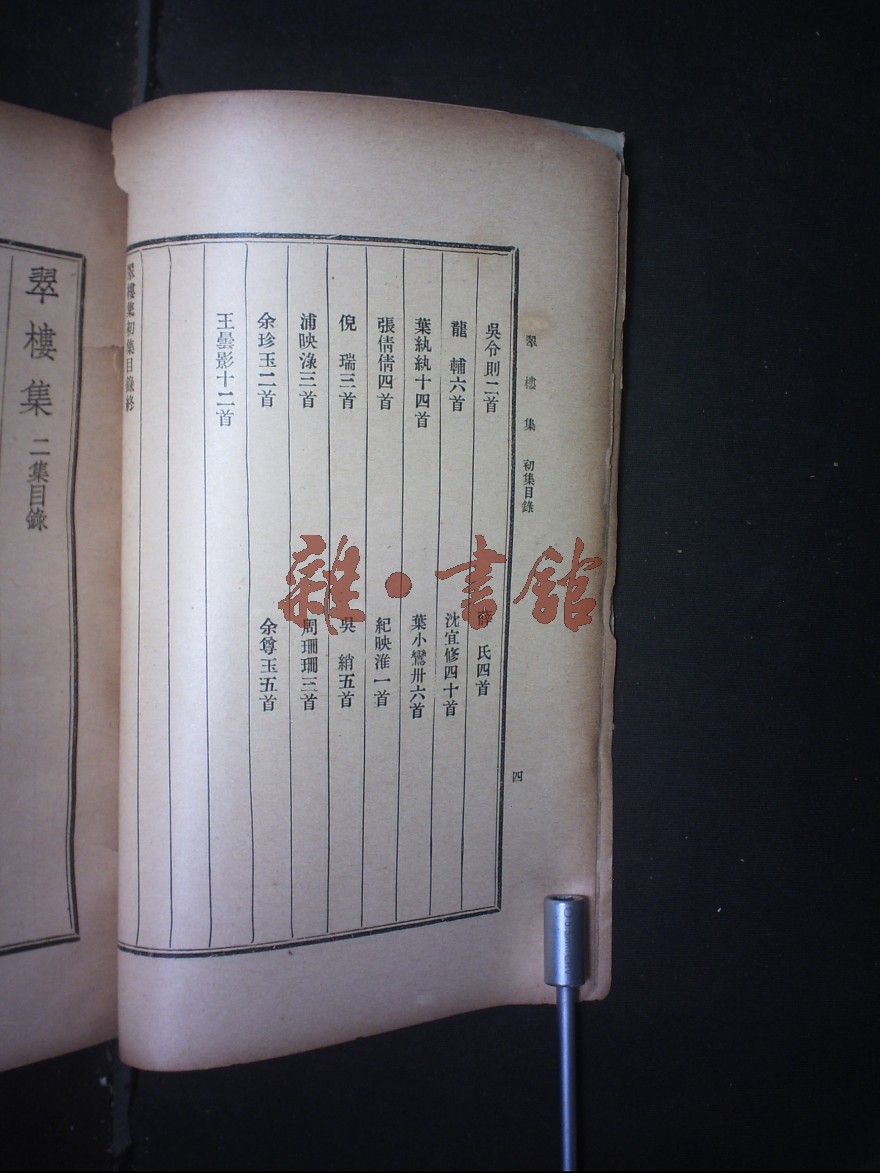 翠樓集 初集目錄
四
吳令則二首
薛 氏四首
龍 輔六首
沈宜修四十首
葉紈紈十四首
葉小鸞卅六首
張倩倩四首
紀映淮一首
倪 瑞三首
吳 綃五首
浦映淥三首
周珊珊三首
余珍玉二首
余尊玉五首
王曇影十二首
翠樓集初集目錄終
翠樓集 二集目錄
雜·書館